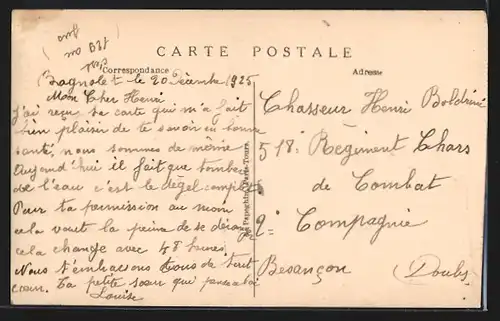 CARTE POSTALE
Correspondance
Adresse
Bagnolet le 20 Décembre 1925
Mon Cher Henri
J'ai reçu ta carte qui m'a fait
bien plaisir de te savoir en bonne
santé, nous sommes de même
Aujourd'hui il fait que tomber
de l'eau c'est le dégel complet
Pour ta permission au moin
cela vaut la peine de se déranger
cela change avec 48 heures
Nous t'embrassons tous de tout
cœur. Ta petite sœur qui pense a toi
Louise
Chasseur Henri Boldrini
518e Régiment Chars
de Combat
2e Compagnie
Besançon (Doubs)
Papeghin, Paris-Tours.